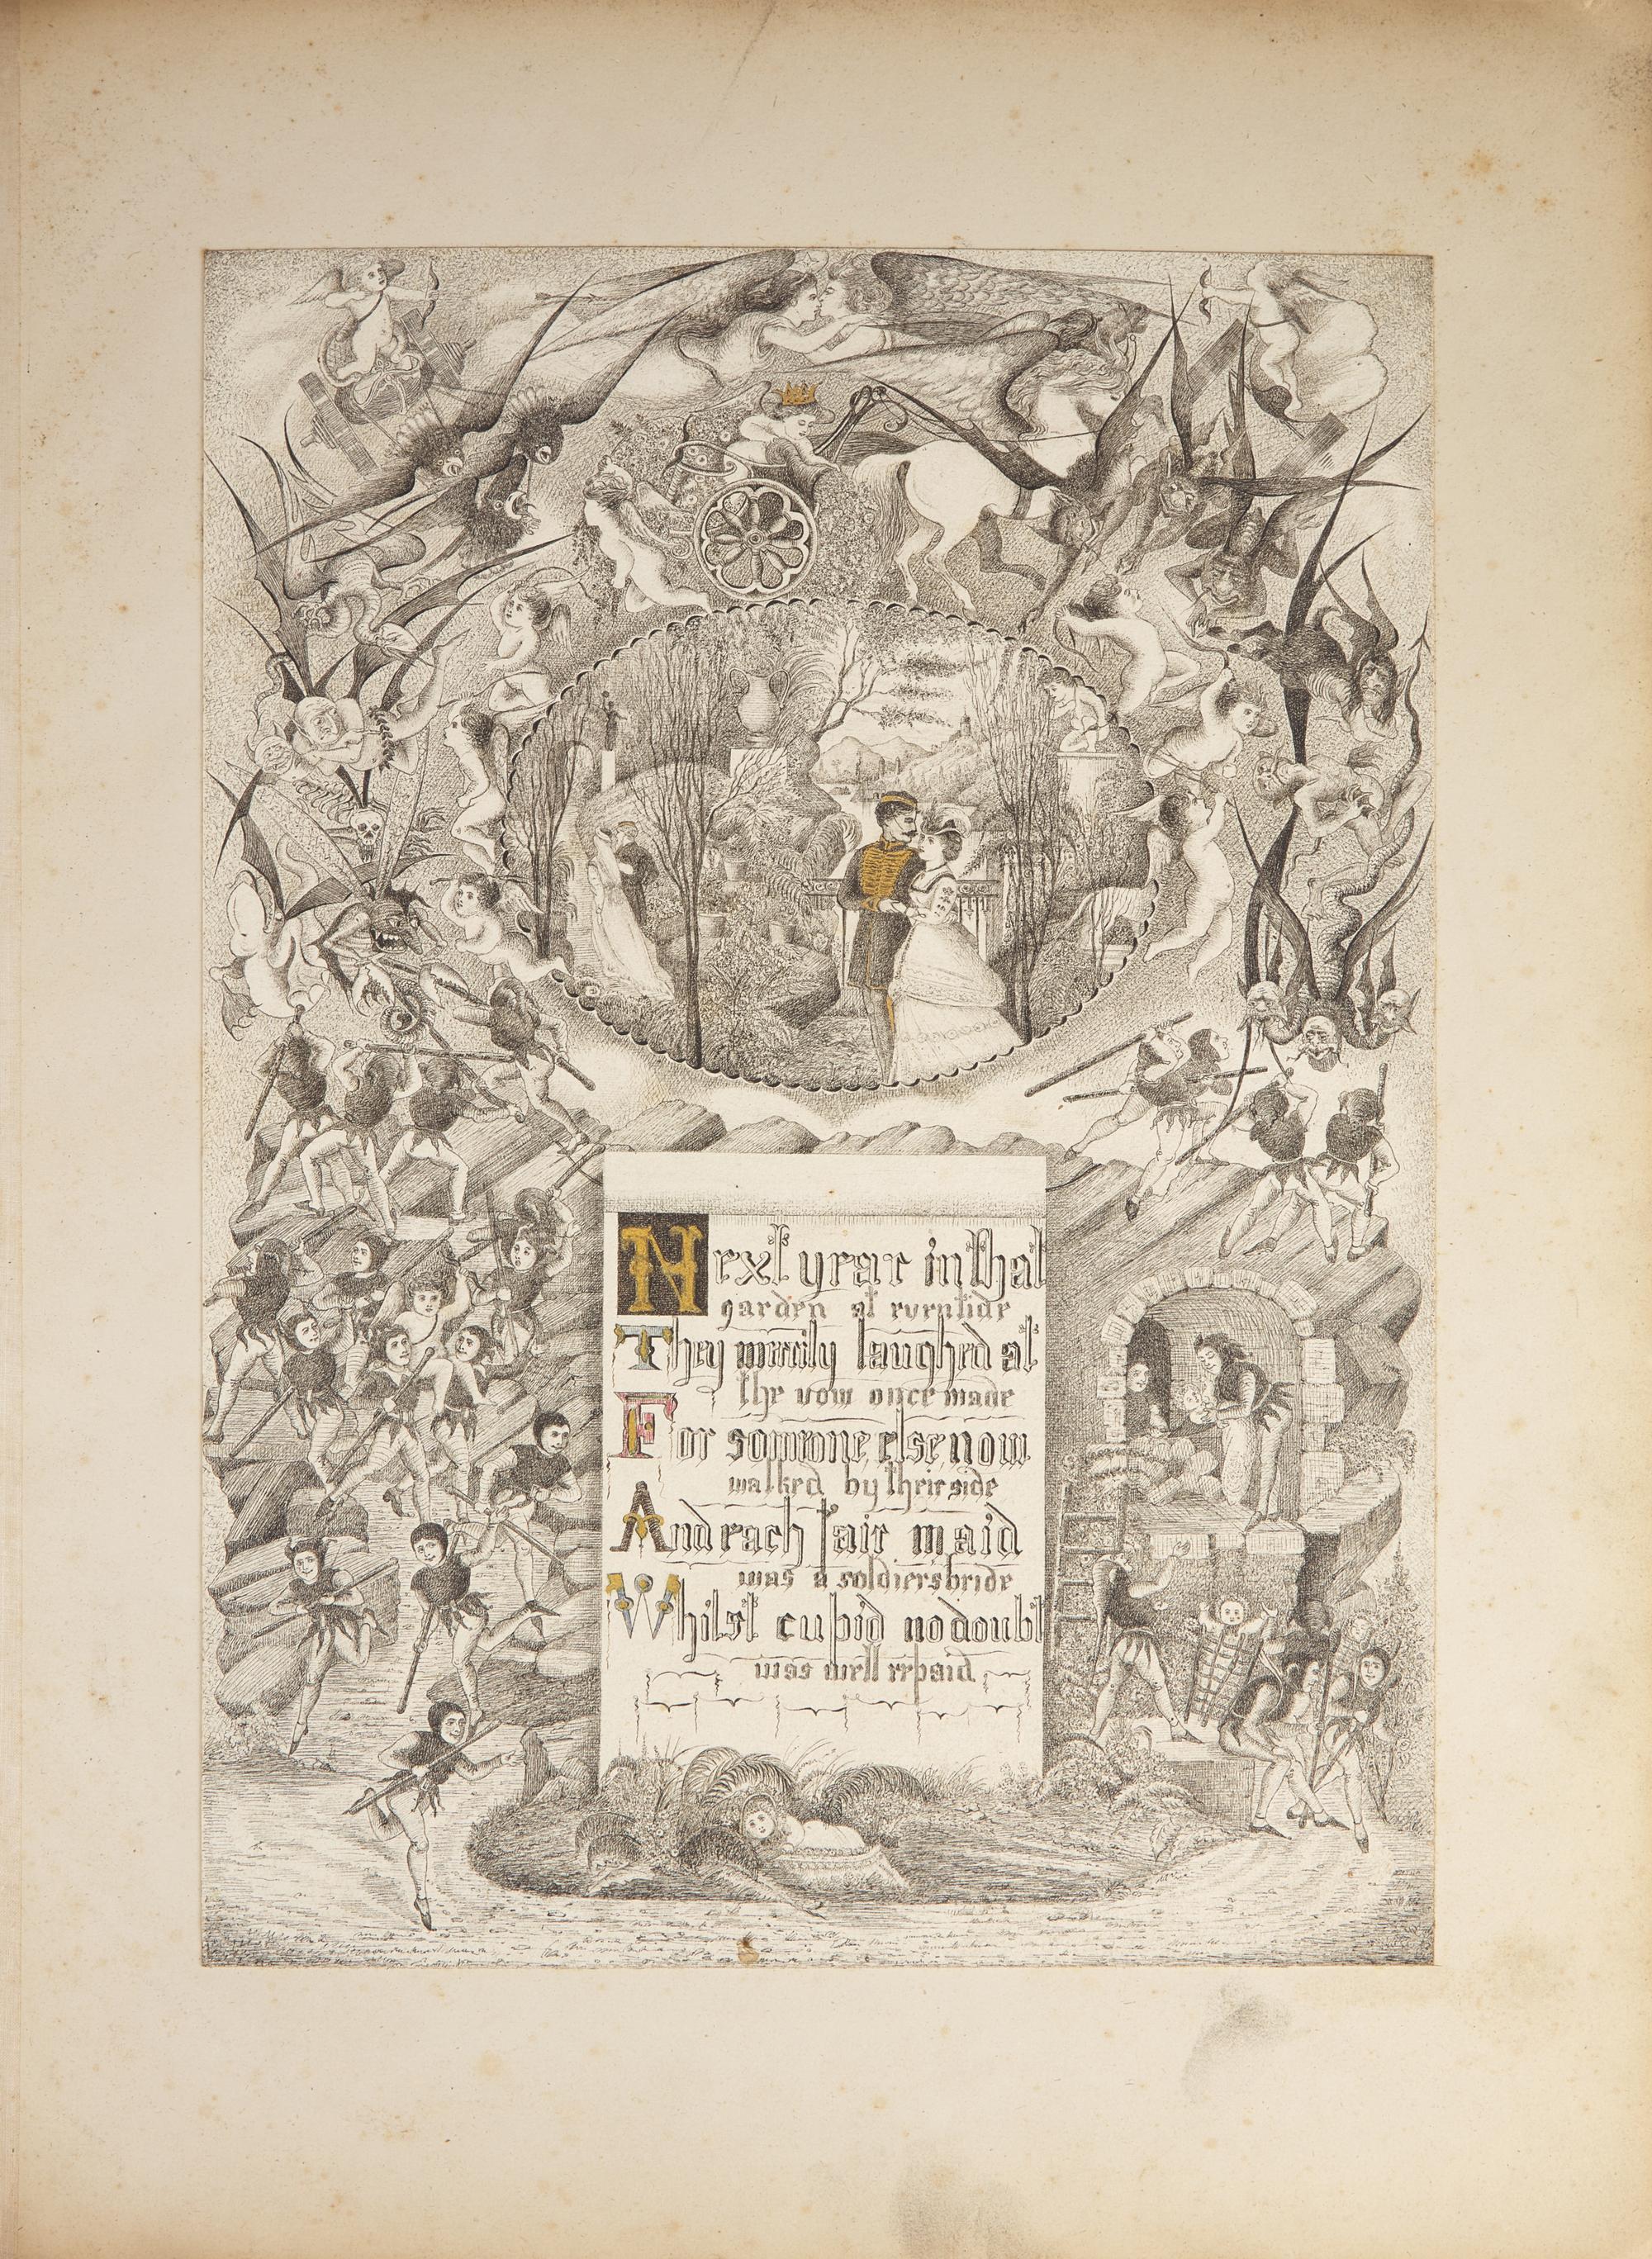 Next year in that
garden at eventide
They merrily laughed at
the vow once made
For someone else now
walked by their side
And each fair maid
was a soldiers bride
Whilst cupid no doubt
was well repaid